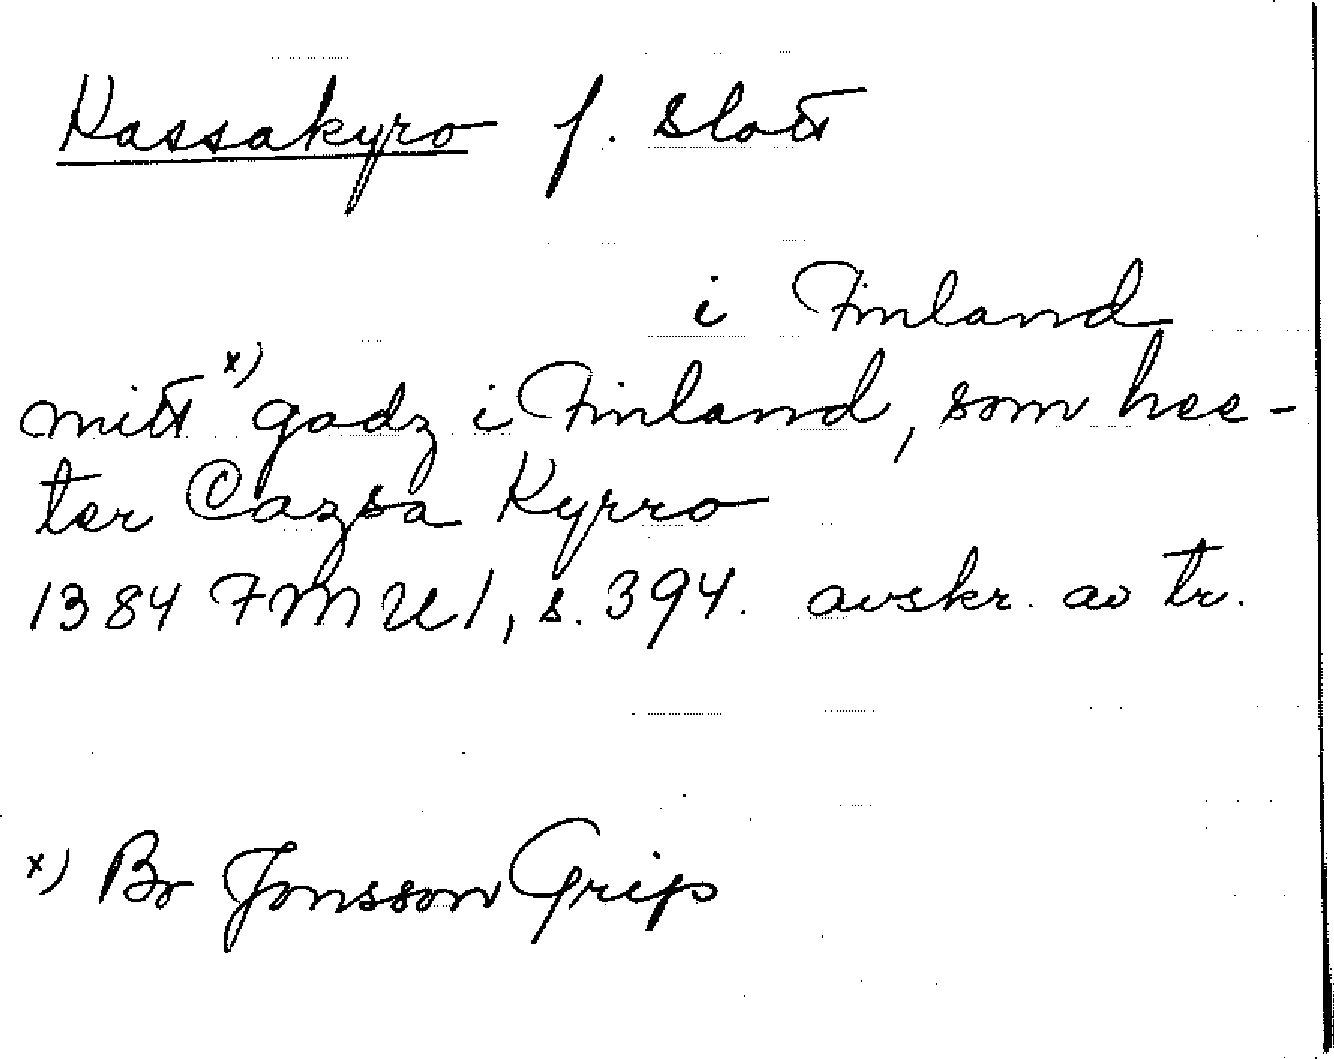 Kassakyro f. slott
i Finland
mitt x) godz i Finland, som hee-
ter Cazsa Kyrro
1384 FMU 1, s. 394. avskr. av tr.
x) Bo Jonsson Grip